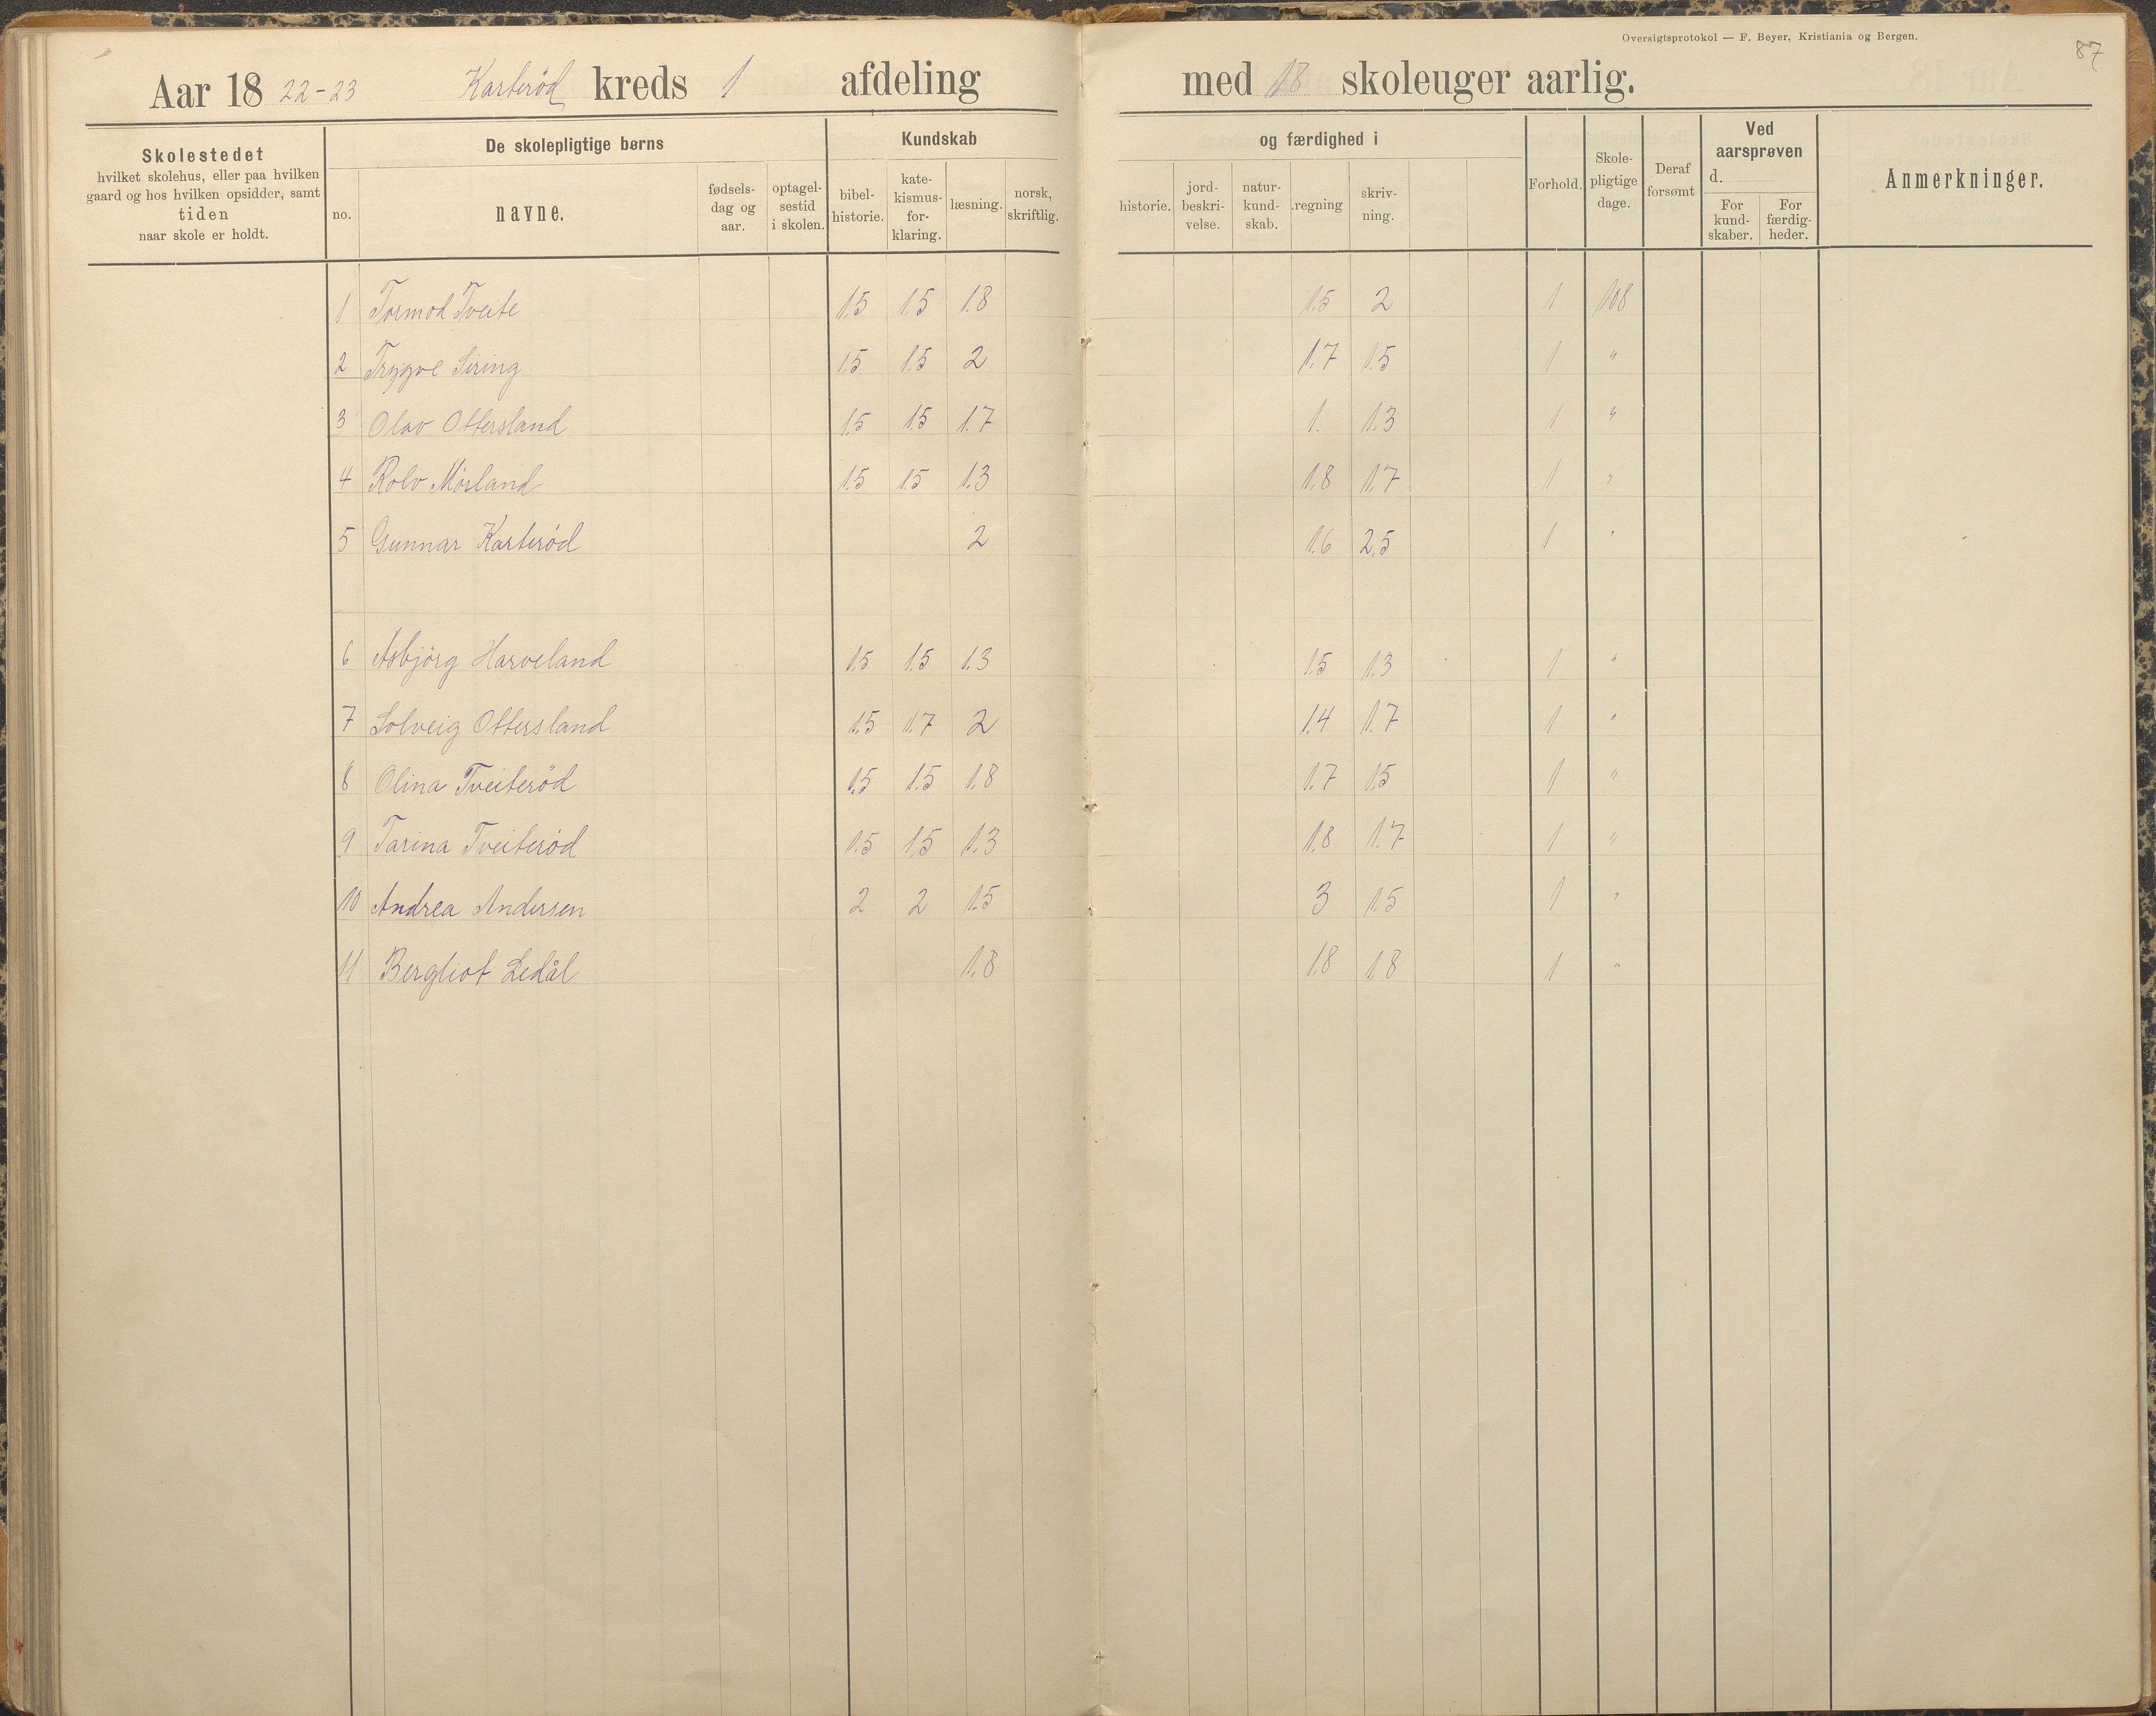 Oversigtsprotokol — F. Beyer, Kristiania og Bergen.
87
Aar 18 22-23 Karterød kreds 1 afdeling med 18 skoleuger aarlig.
Skolestedet
hvilket skolehus, eller paa hvilken
gaard og hos hvilken opsidder, samt
tiden
naar skole er holdt.
De skolepligtige børns
no.
navne.
fødsels-
dag og
aar.
optagel-
sestid
i skolen.
Kundskab
bibel-
historie.
kate-
kismus-
for-
klaring.
læsning.
norsk,
skriftlig.
og færdighed i
historie.
jord-
beskri-
velse.
natur-
kund-
skab.
regning
skriv-
ning.
Forhold.
Skole-
pligtige
dage.
Deraf
forsømt
Ved
aarsprøven
d.
For
kund-
skaber.
For
færdig-
heder.
Anmerkninger.
1 Tormod Tveite 1.5 1.5 1.8 1.5 2 1 108
2 Trygve Siring 1.5 1.5 2 1.7 1.5 1 "
3 Olav Ottersland 1.5 1.5 1.7 1. 1.3 1 "
4 Rolv Mörland 1.5 1.5 1.3 1.8 1.7 1 "
5 Gunnar Karteröd 2 1.6 2,5 1 "
6 Asbjörg Harveland 1.5 1.5 1.3 1.5 1.3 1 "
7 Solveig Ottersland 1.5 1.7 2 1.4 1.7 1 "
8 Olina Tveiteröd 1.5 1.5 1.8 1.7 1.5 1 "
9 Tarina Tveiteröd 1.5 1,5 1.3 1.8 1.7 1 "
10 Andrea Andersen 2 2 1.5 3 1.5 1 "
11 Bergliot Ledål 1.8 1.8 1.8 1 "